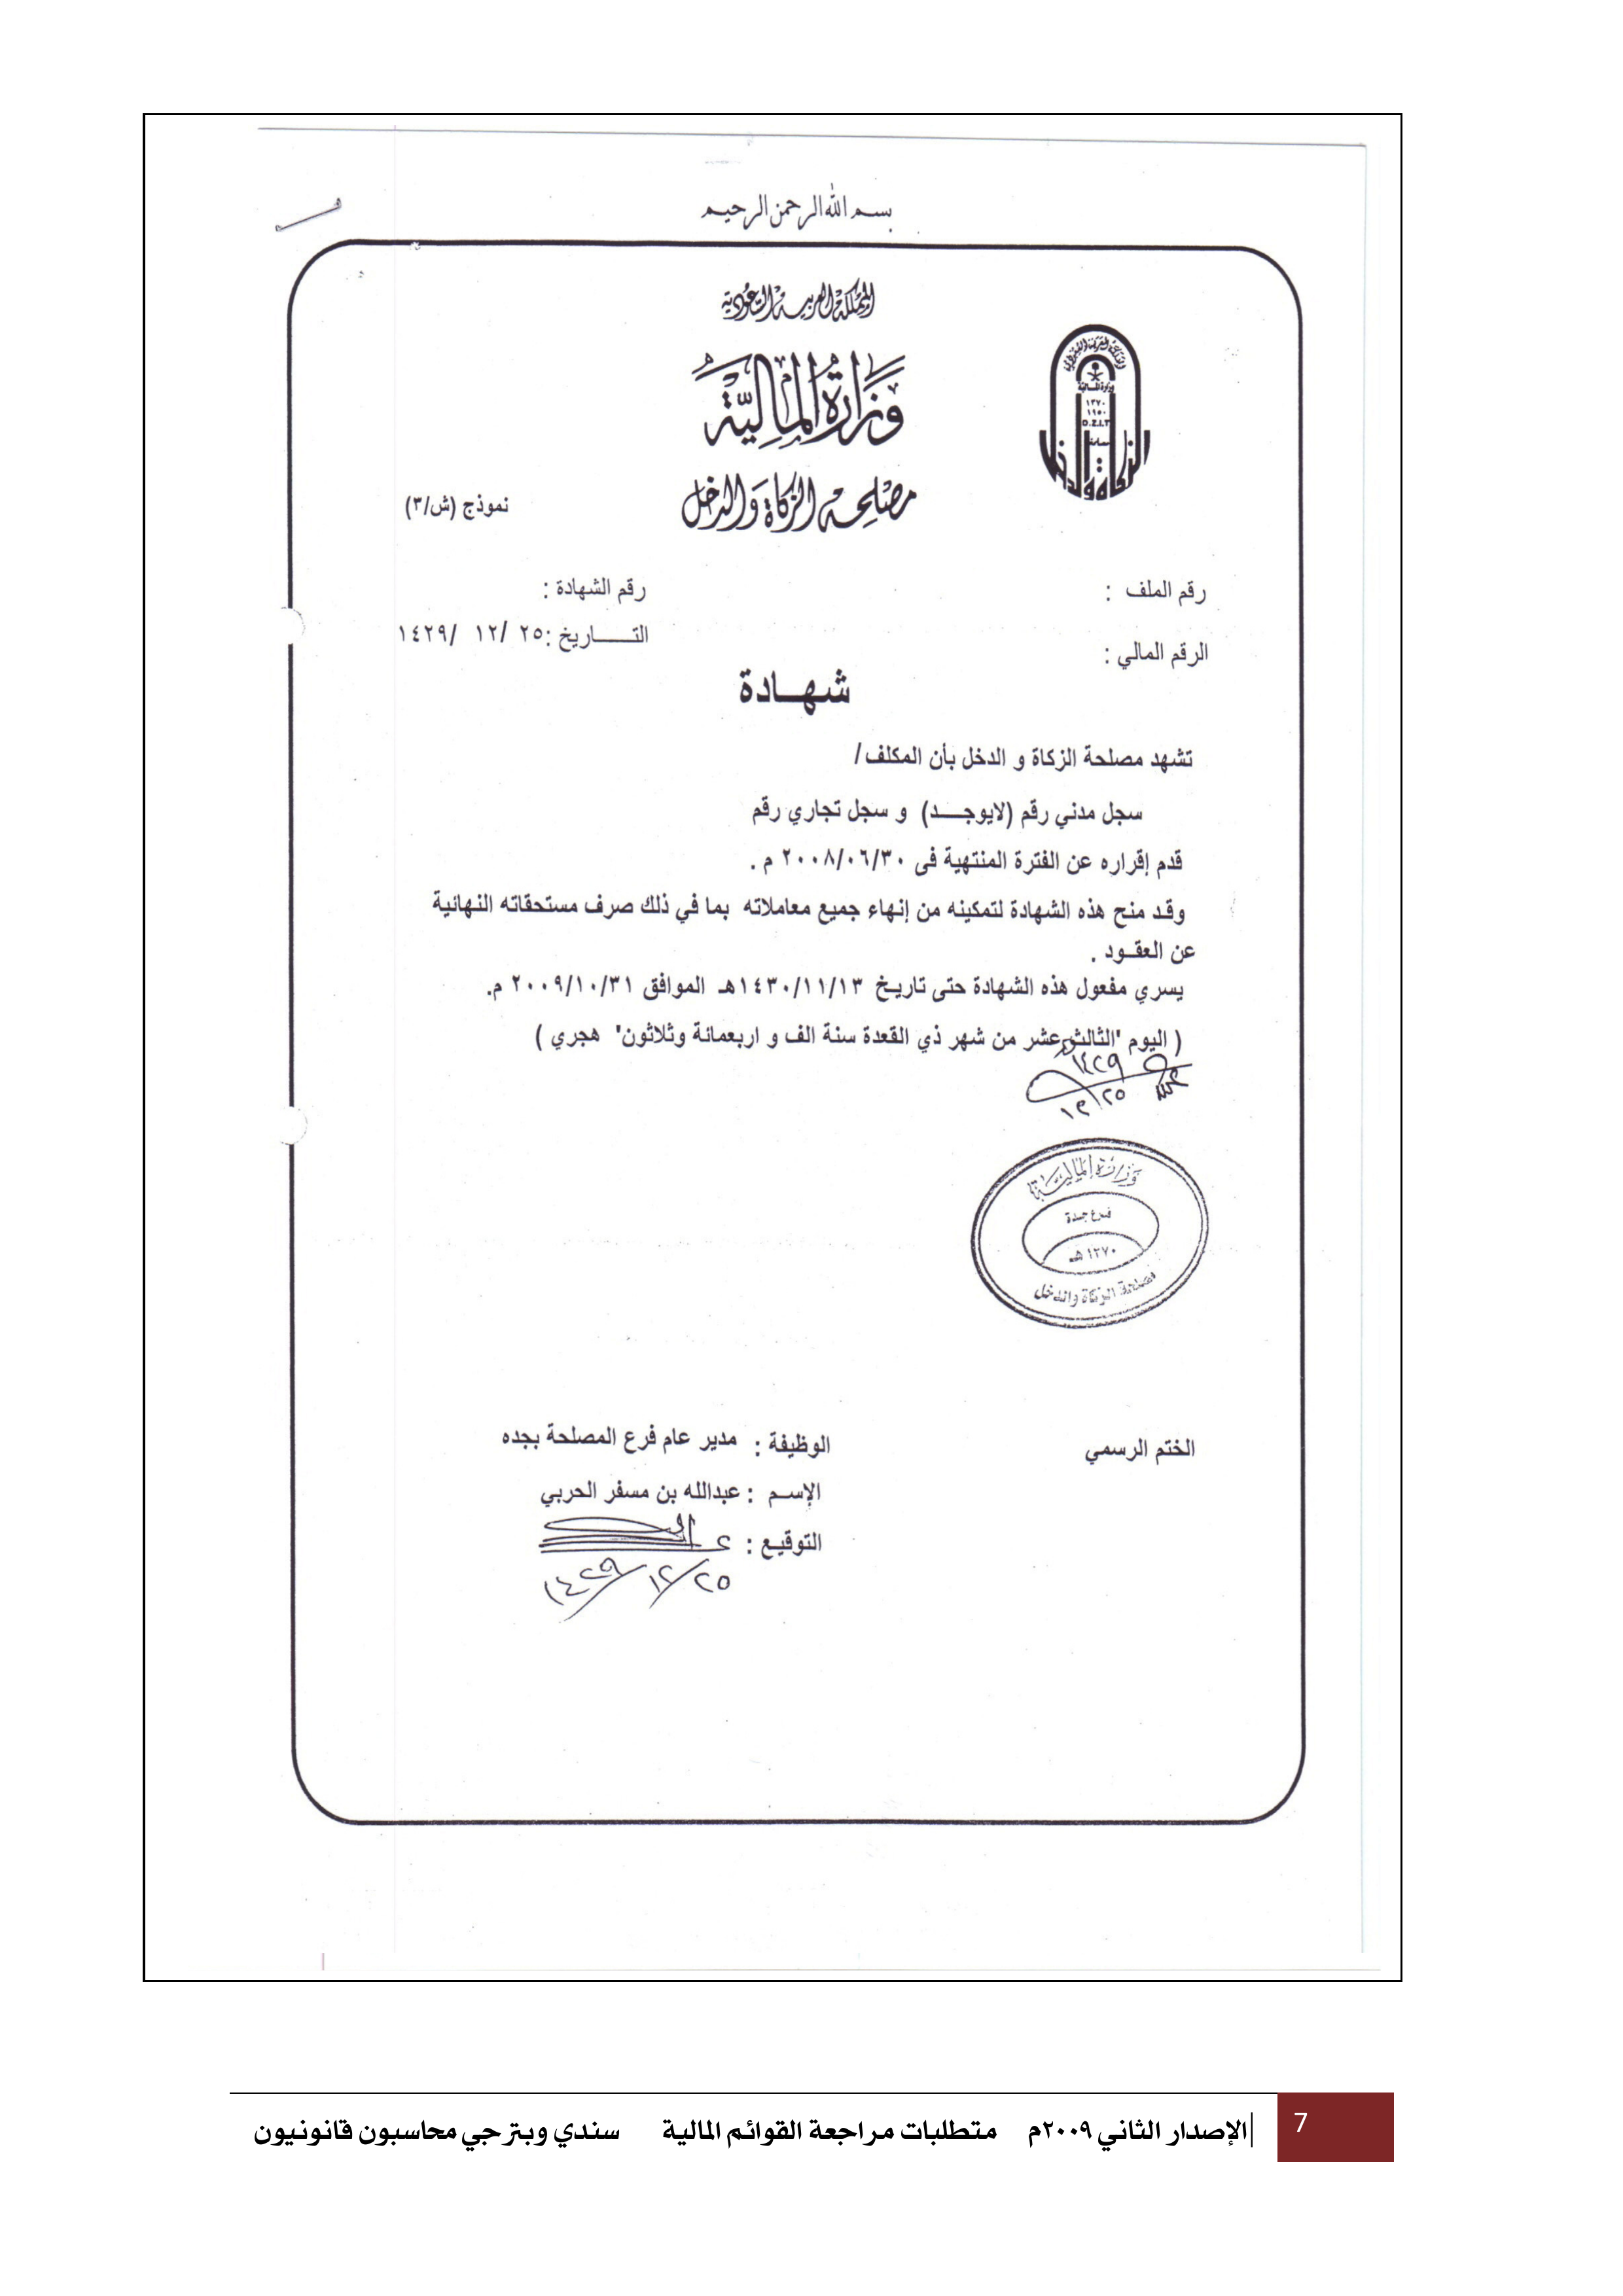 بسم الله الرحمن الرحيم
المملكة العربية السعودية
وزارة المالية
مصلحة الزكاة والدخل
وزارة المالية
١٣٧٠
١٩٥٠
D.Z.I.T
مصلحة
الزكاة والدخل
نموذج (ش/٣)
رقم الملف :
رقم الشهادة :
التـــــاريخ :٢٥ /١٢ /١٤٢٩
الرقم المالي :
شهـــادة
تشهد مصلحة الزكاة و الدخل بأن المكلف /
سجل مدني رقم (لايوجــــد) و سجل تجاري رقم
قدم إقراره عن الفترة المنتهية فى ٢٠٠٨/٠٦/٣٠ م .
وقـد منح هذه الشهادة لتمكينه من إنهاء جميع معاملاته بما في ذلك صرف مستحقاته النهائية
عن العقــود .
يسري مفعول هذه الشهادة حتى تاريـخ ١٤٣٠/١١/١٣هـ الموافق ٢٠٠٩/١٠/٣١ م.
( اليوم "الثالث عشر من شهر ذي القعدة سنة الف و اربعمائة وثلاثون" هجري )
١٤٢٩
١٢/٢٥
وزارة المالية
فرع جدة
١٣٧٠ هـ
مصلحة الزكاة والدخل
الختم الرسمي
الوظيفة : مدير عام فرع المصلحة بجده
الإســم : عبدالله بن مسفر الحربي
التوقيـع :
٢٥/١٢/١٤٢٩
7
الإصدار الثاني ٢٠٠٩م متطلبات مراجعة القوائم المالية سندي وبترجي محاسبون قانونيون